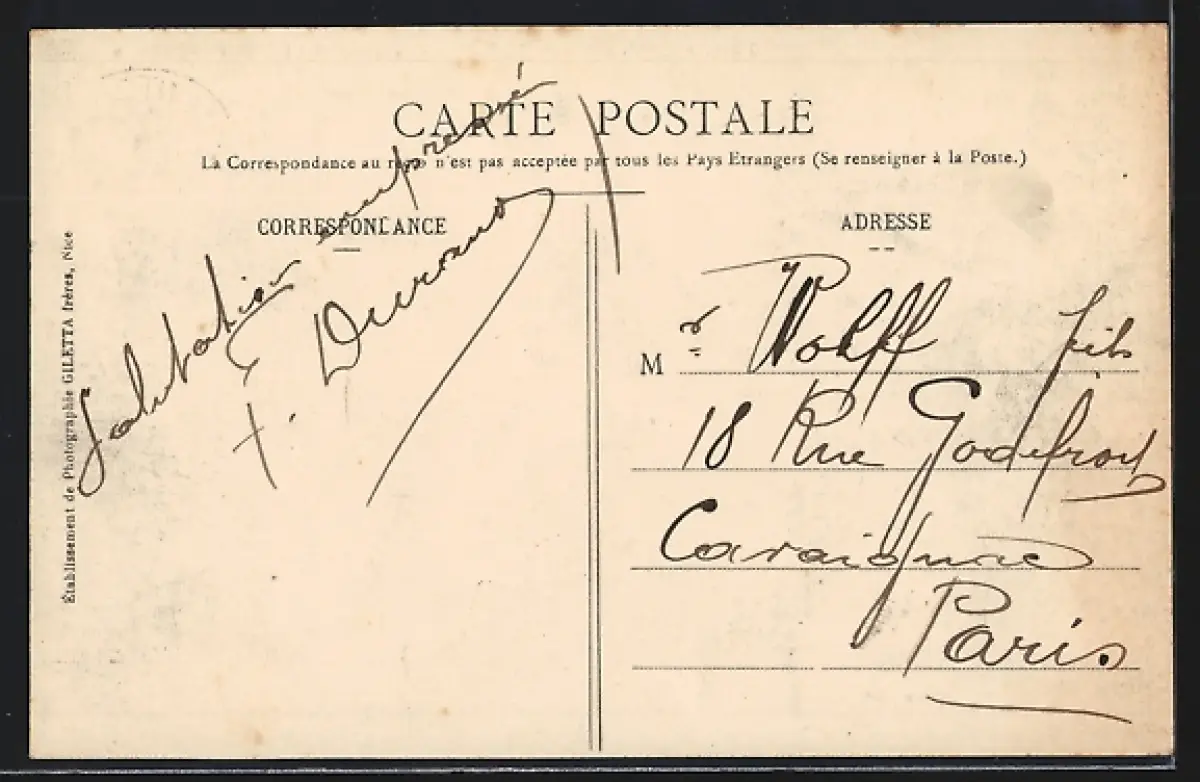 CARTE POSTALE
La Correspondance au recto n'est pas acceptée par tous les Pays Etrangers (Se renseigner à la Poste.)
CORRESPONDANCE
Salutation empressé
F. Durand
Établissement de Photographie GILETTA frères, Nice
ADRESSE
M r Wolff fils
18 Rue Godefroy
Cavaignac
Paris